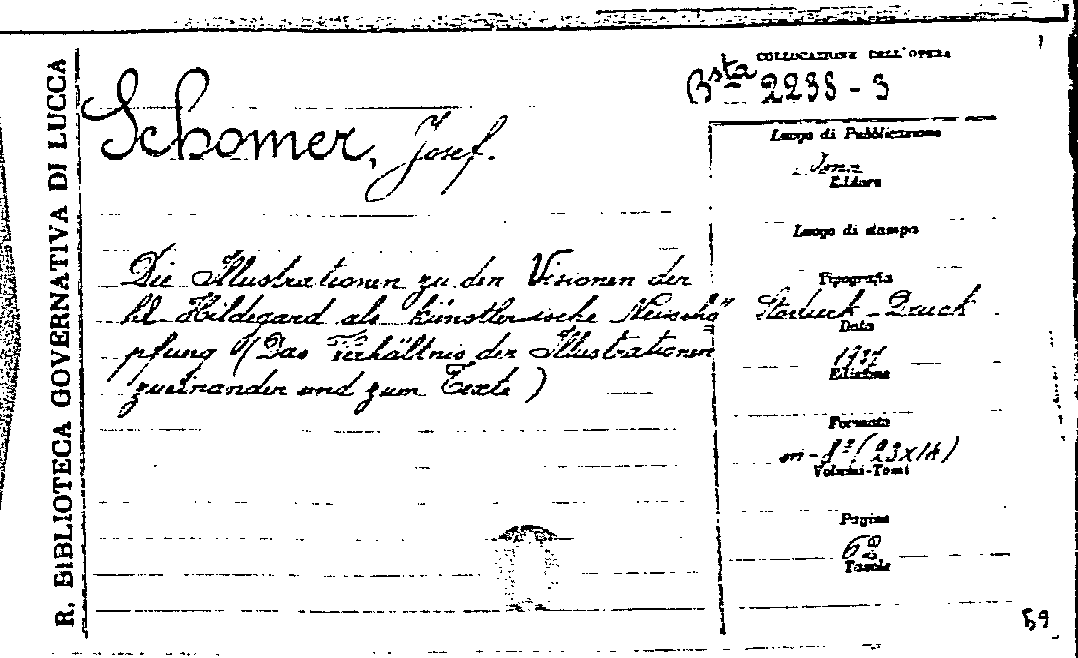 R. BIBLIOTECA GOVERNATIVA DI LUCCA
COLLOCAZIONE DELL'OPERA
Bsta 2238 - 3
Schomer, Josef.
Luogo di Pubblicazione
Editore
Luogo di stampa
Die Illustrationen zu den Visionen der
hl. Hildegard als künstlerische Neuschö=
pfung (Das Verhältnis der Illustrationen
zueinander und zum Texte)
Tipografia
Druck
Data
1937
Edizione
Formato
in-8º (23x14)
Volumi-Tomi
Pagine
62
Tavole
59